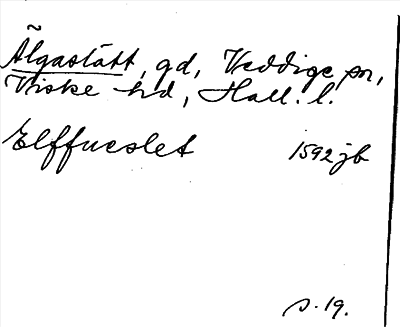 Älgastått, gd, Veddige sn,
Viske hd, Hall. l.
Elffueslet 1592 jb
s. 19.